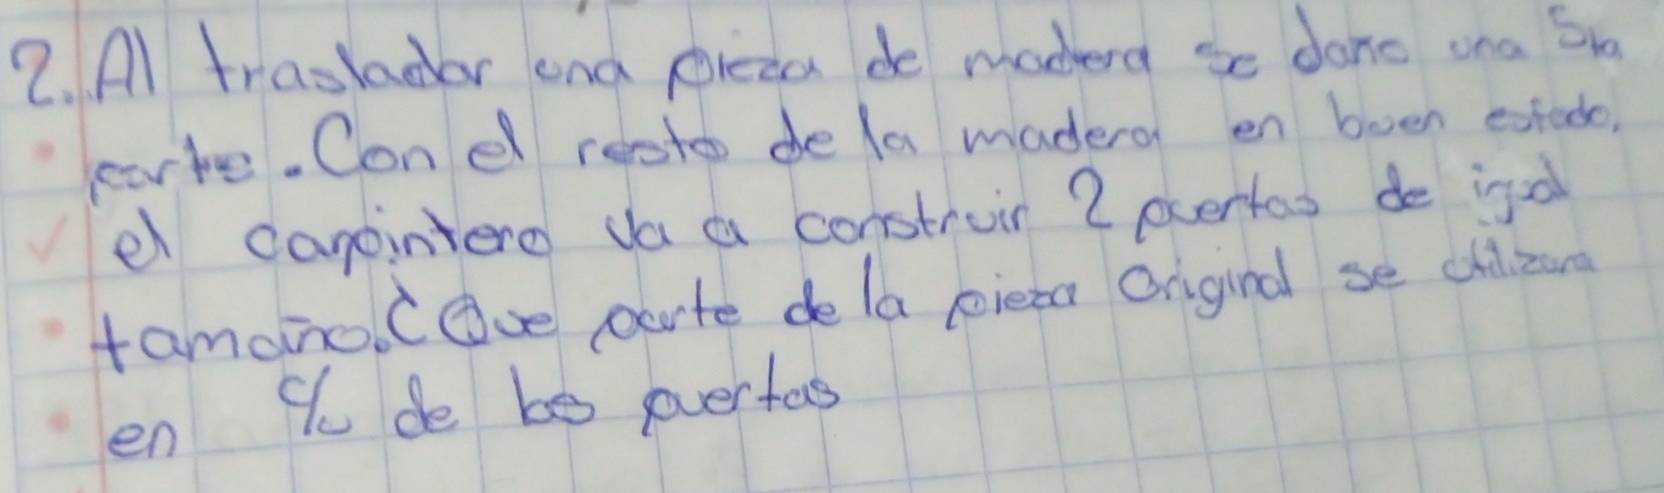 2. Al trasladar una pieza de madera se daño una 5ta
parte. Con el resto de la madera en buen estado.
el carpintero va a construir 2 puertas de igual
tamaño. ¿Que parte de la pieza Original se utilizara
en c/u de las puertas